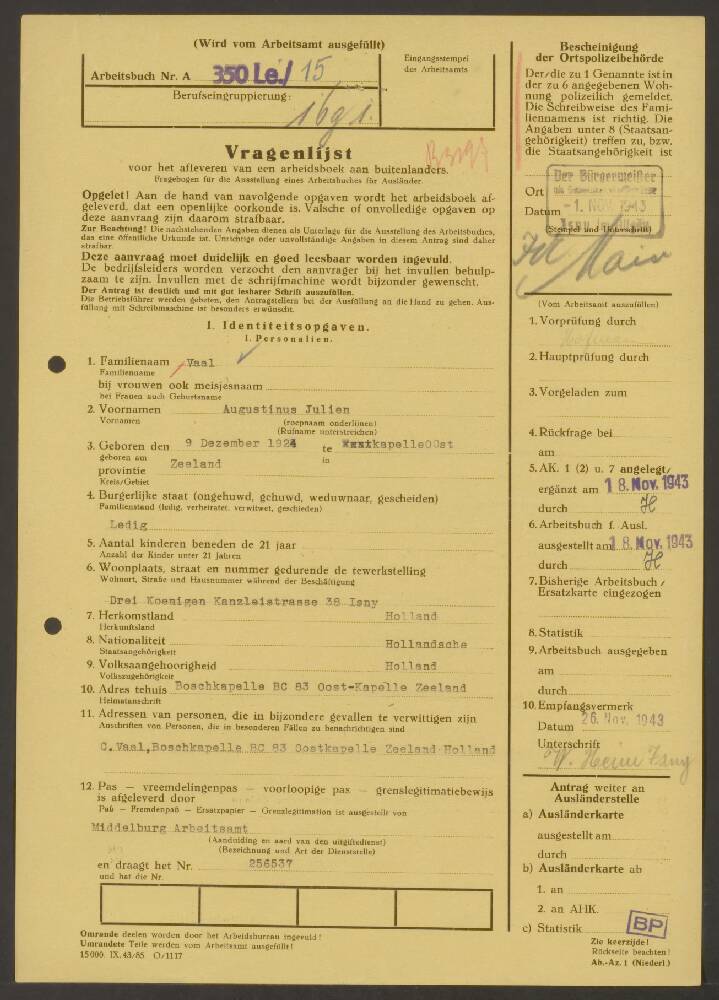 (Wird vom Arbeitsamt ausgefüllt)
Arbeitsbuch Nr. A 350 Le./ 15
Berufseingruppierung:
16g1.
Eingangsstempel
des Arbeitsamts
Vragenlijst
voor het afleveren van een arbeidsboek aan buitenlanders.
Fragebogen für die Ausstellung eines Arbeitsbuches für Ausländer.
Opgelet! Aan de hand van navolgende opgaven wordt het arbeidsboek af-
geleverd, dat een openlijke oorkonde is. Valsche of onvolledige opgaven op
deze aanvraag zijn daarom strafbaar.
Zur Beachtung! Die nachstehenden Angaben dienen als Unterlage für die Ausstellung des Arbeitsbuches,
das eine öffentliche Urkunde ist. Unrichtige oder unvollständige Angaben in diesem Antrag sind daher
strafbar.
Deze aanvraag moet duidelijk en goed leesbaar worden ingevuld.
De bedrijfsleiders worden verzocht den aanvrager bij het invullen behulp-
zaam te zijn. Invullen met de schrijfmachine wordt bijzonder gewenscht.
Der Antrag ist deutlich und mit gut lesbarer Schrift auszufüllen.
Die Betriebsführer werden gebeten, den Antragstellern bei der Ausfüllung an die Hand zu gehen. Aus-
füllung mit Schreibmaschine ist besonders erwünscht.
I. Identiteitsopgaven.
1. Personalien.
1. Familienaam Vaal
Familienname
bij vrouwen ook meisjesnaam
bei Frauen auch Geburtsname
2. Voornamen Augustinus Julien
Vornamen
(roepnaam onderlijnen)
(Rufname unterstreichen)
3. Geboren den 9 Dezember 1924 te kapelleOOst
geboren am in
provintie Zeeland
Kreis/Gebiet
4. Burgerlijke staat (ongehuwd, gehuwd, weduwnaar, gescheiden)
Familienstand (ledig, verheiratet, verwitwet, geschieden)
Ledig
5. Aantal kinderen beneden de 21 jaar
Anzahl der Kinder unter 21 Jahren
6. Woonplaats, straat en nummer gedurende de tewerkstelling
Wohnort, Straße und Hausnummer während der Beschäftigung
Drei Koenigen Kanzleistrasse 38 Isny
7. Herkomstland Holland
Herkunftsland
8. Nationaliteit Hollandsche
Staatsangehörigkeit
9. Volksaangehoorigheid Holland
Volkszugehörigkeit
10. Adres tehuis Boschkapelle BC 83 Oost-Kapelle Zeeland
Heimatanschrift
11. Adressen van personen, die in bijzondere gevallen te verwittigen zijn
Anschriften von Personen, die in besonderen Fällen zu benachrichtigen sind
C.Vaal,Boschkapelle BC 83 Oostkapelle Zeeland Holland
12. Pas — vreemdelingenpas — voorloopige pas — grenslegitimatiebewijs
is afgeleverd door
Paß — Fremdenpaß — Ersatzpapier — Grenzlegitimation ist ausgestellt von
Middelburg Arbeitsamt
(Aanduiding en aard van den uitgiftedienst)
(Bezeichnung und Art der Dienststelle)
en draagt het Nr. 256537
und hat die Nr.
Omrande deelen worden door het Arbeidsbureau ingevuld!
Umrandete Teile werden vom Arbeitsamt ausgefüllt!
15000. IX. 43/85 O/1117
Bescheinigung
der Ortspolizeibehörde
Der/die zu 1 Genannte ist in
der zu 6 angegebenen Woh-
nung polizeilich gemeldet.
Die Schreibweise des Fami-
liennamens ist richtig. Die
Angaben unter 8 (Staatsan-
gehörigkeit) treffen zu, bzw.
die Staatsangehörigkeit ist
Der Bürgermeister
Ort
Datum -1. NOV. 1943
Isny
(Stempel und Unterschrift)
(Vom Arbeitsamt auszufüllen)
1. Vorprüfung durch
2. Hauptprüfung durch
3. Vorgeladen zum
4. Rückfrage bei
am
5. AK. 1 (2) u. 7 angelegt/
ergänzt am 18. Nov. 1943
durch
6. Arbeitsbuch f. Ausl.
ausgestellt am 18. Nov. 1943
durch
7. Bisherige Arbeitsbuch/
Ersatzkarte eingezogen
8. Statistik
9. Arbeitsbuch ausgegeben
am
durch
10. Empfangsvermerk
Datum 26. Nov. 1943
Unterschrift
Antrag weiter an
Ausländerstelle
a) Ausländerkarte
ausgestellt am
durch
b) Ausländerkarte ab
1. an
2. an AHK.
c) Statistik
BP
Zie keerzijde!
Rückseite beachten!
Ab.-Az. 1 (Niederl.)